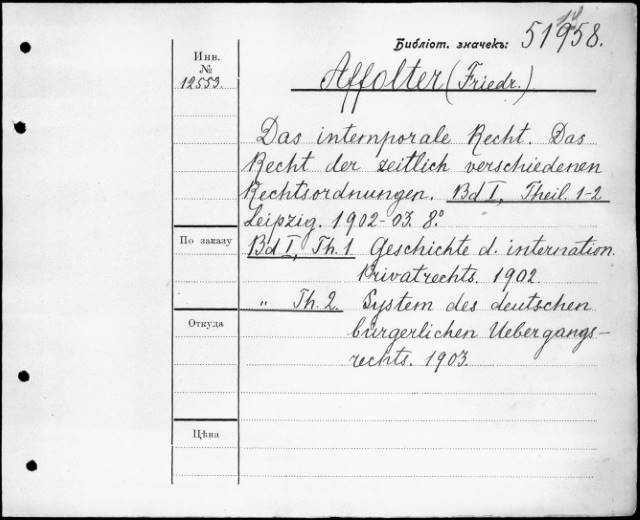 Библіот. значекъ: 51958.
14
Инв.
№
12553.
Affolter (Friedr.)
Das internporale Recht. Das
Recht der zeitlich verschiedenen
Rechtsordnungen. Bd I, Theil. 1-2
Leipzig. 1902-03. 8º
По заказу
Bd I, Th. 1 Geschichte d. internation.
Privatrechts. 1902
" Th. 2. System des deutschen
bürgerlichen Uebergangs-
rechts. 1903.
Откуда
Цѣна